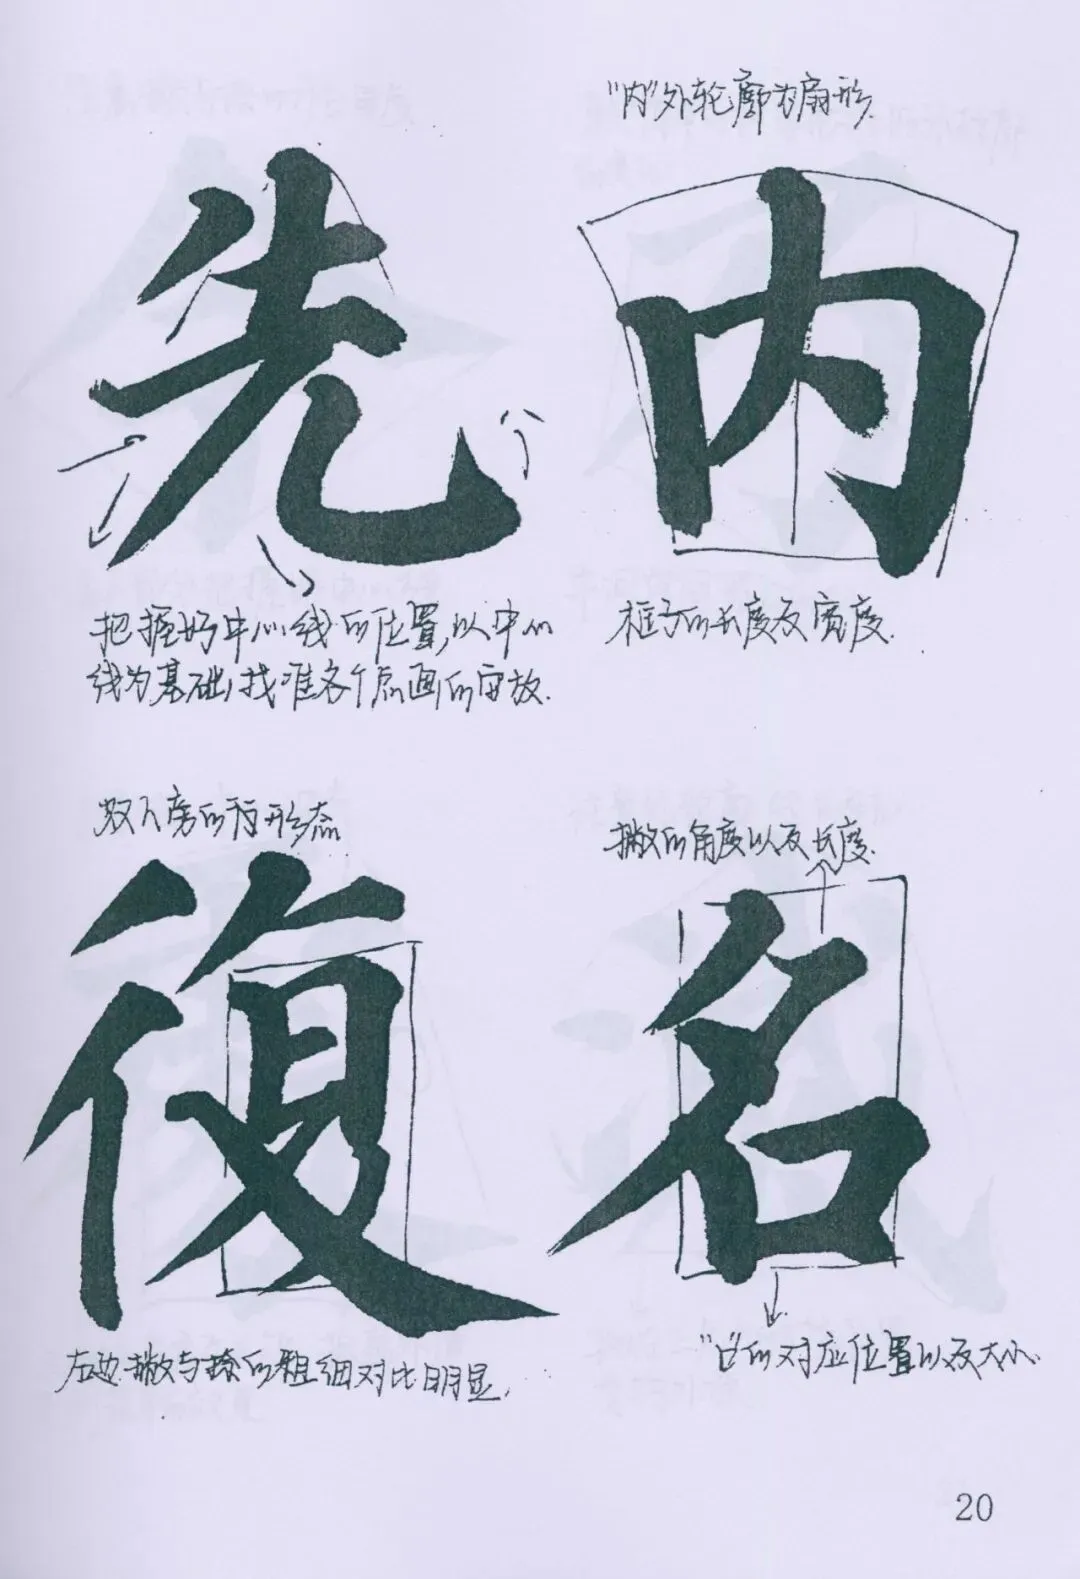 "内"外轮廓为扇形.
先
内
把握好中心线的位置,以中心
线为基础,找准各个点画的安放.
框子的长度及宽度.
双人旁的形态
撇的角度以及长度.
復
名
左边撇与捺的粗细对比明显.
"口"的对应位置以及大小.
20